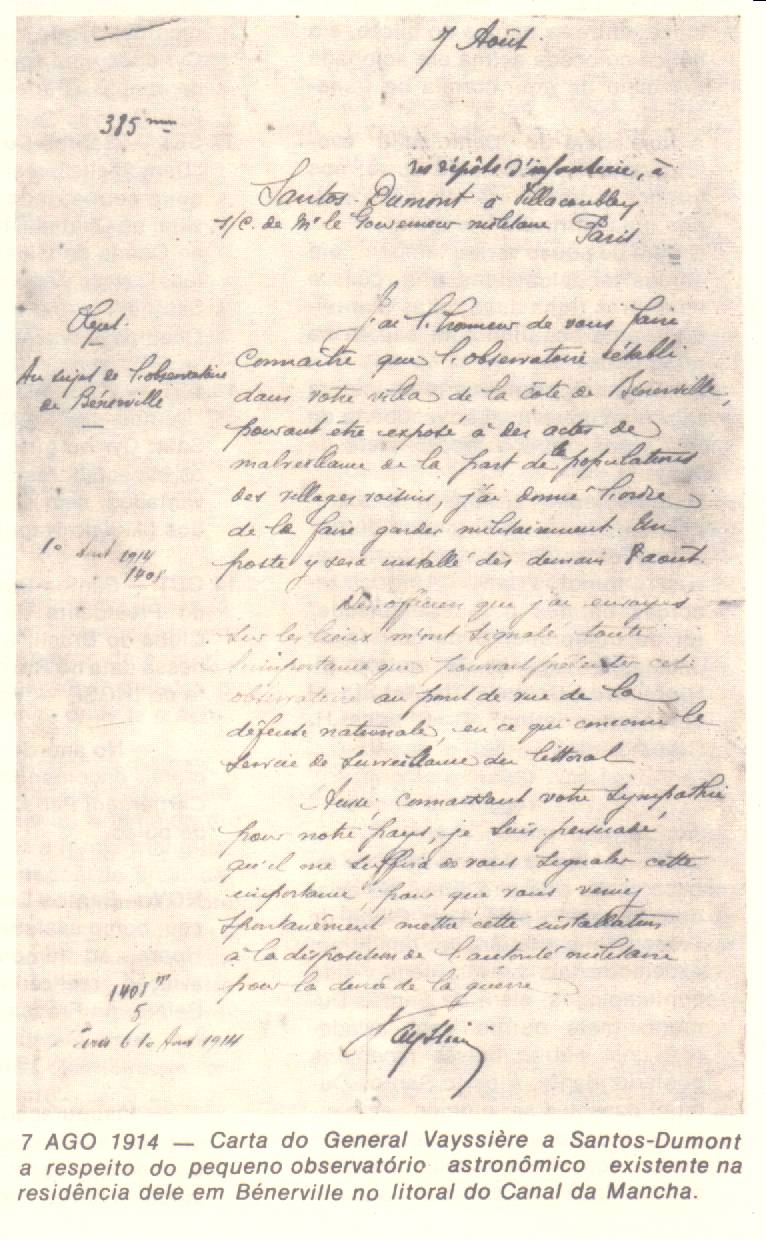 7 Août.
385 mm
les dépôts d'infanterie, à
Santos-Dumont à Villacoublay
s/c. de Mr le Gouverneur militaire Paris.
Objet.
Au sujet de l'observatoire
de Bénerville
J'ai l'honneur de vous faire
connaître que l'observatoire établi
dans votre villa de la côte de Bénerville,
pouvant être exposé à des actes de
malveillance de la part de la populations
des villages voisins, j'ai donné l'ordre
de le faire garder militairement. Un
poste y sera installé dès demain 8 août.
10 Août 1914
1408
Des officiers que j'ai envoyés
sur les lieux m'ont signalé toute
l'importance que pourrait présenter cet
observatoire au point de vue de la
défense nationale, en ce qui concerne le
service de surveillance du littoral.
Aussi, connaissant votre sympathie
pour notre pays, je suis persuadé
qu'il me suffira de vous signaler cette
importance, pour que vous veniez
spontanément mettre cette installation
à la disposition de l'autorité militaire
pour la durée de la guerre
1408
5
Paris le 10 Août 1914
Vayssière
7 AGO 1914 — Carta do General Vayssière a Santos-Dumont
a respeito do pequeno observatório astronômico existente na
residência dele em Bénerville no litoral do Canal da Mancha.